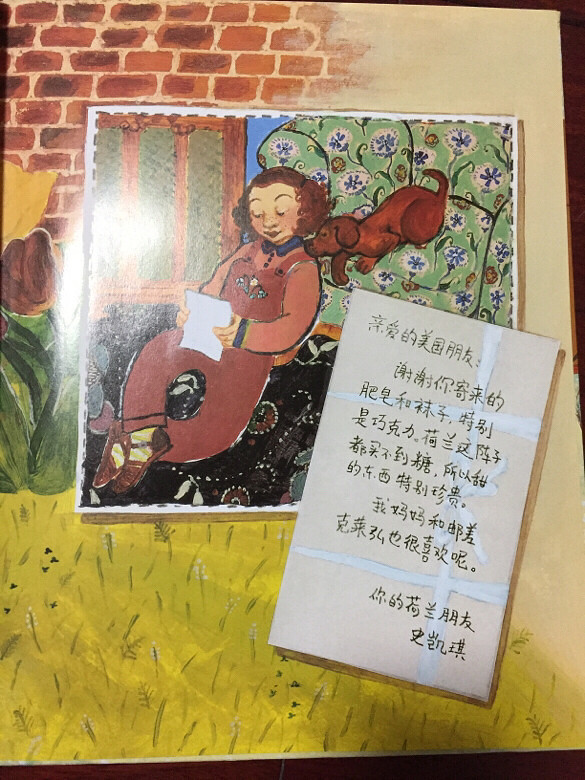 亲爱的美国朋友:
谢谢你寄来的
肥皂和袜子,特别
是巧克力。荷兰这阵子
都买不到糖,所以甜
的东西特别珍贵。
我妈妈和邮差
克莱弘也很喜欢呢。
你的荷兰朋友
史凯琪